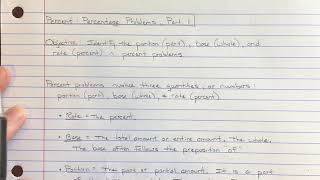 Percent: Percentage Problems, Part 1
Objective: Identify the portion (part), base (whole), and
rate (percent) in percent problems
Percent problems involve three quantities, or numbers:
portion (part), base (whole), & rate (percent).
• Rate = The percent.
• Base = The total amount or entire amount. The whole.
The base often follows the preposition "of"
• Portion = The part or partial amount. It is a part